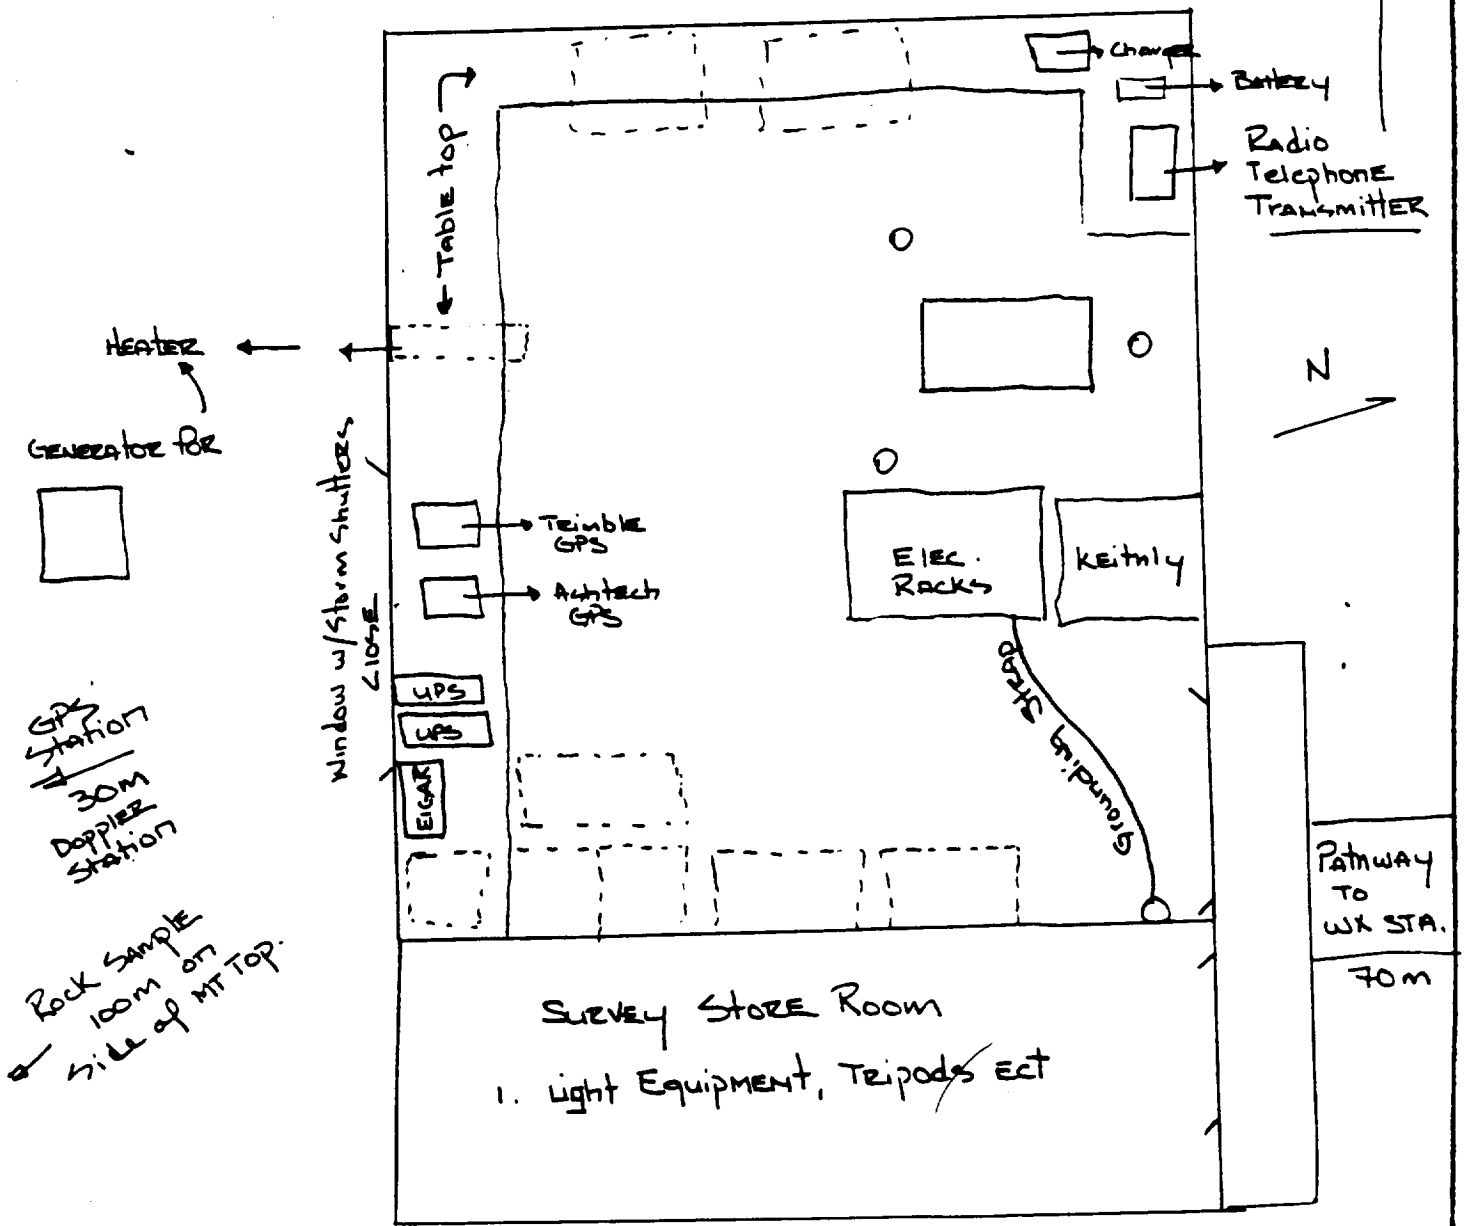 Charger
Battery
Radio
Telephone
Transmitter
← Table top →
Heater
Generator for
N
Window w/ Storm Shutters
Close
Trimble
GPS
Ashtech
GPS
Elec.
Racks
Keithly
UPS
UPS
EIGAK
Grounding Strap
GPS
Station
30m
Doppler
Station
Rock Sample
100m on
side of MT Top.
Pathway
To
WX STA.
70m
Survey Store Room
1. Light Equipment, Tripods Ect